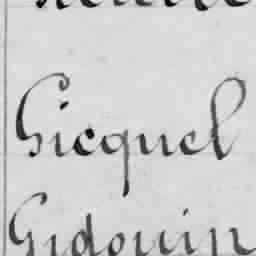 Gicquel
Gidouin